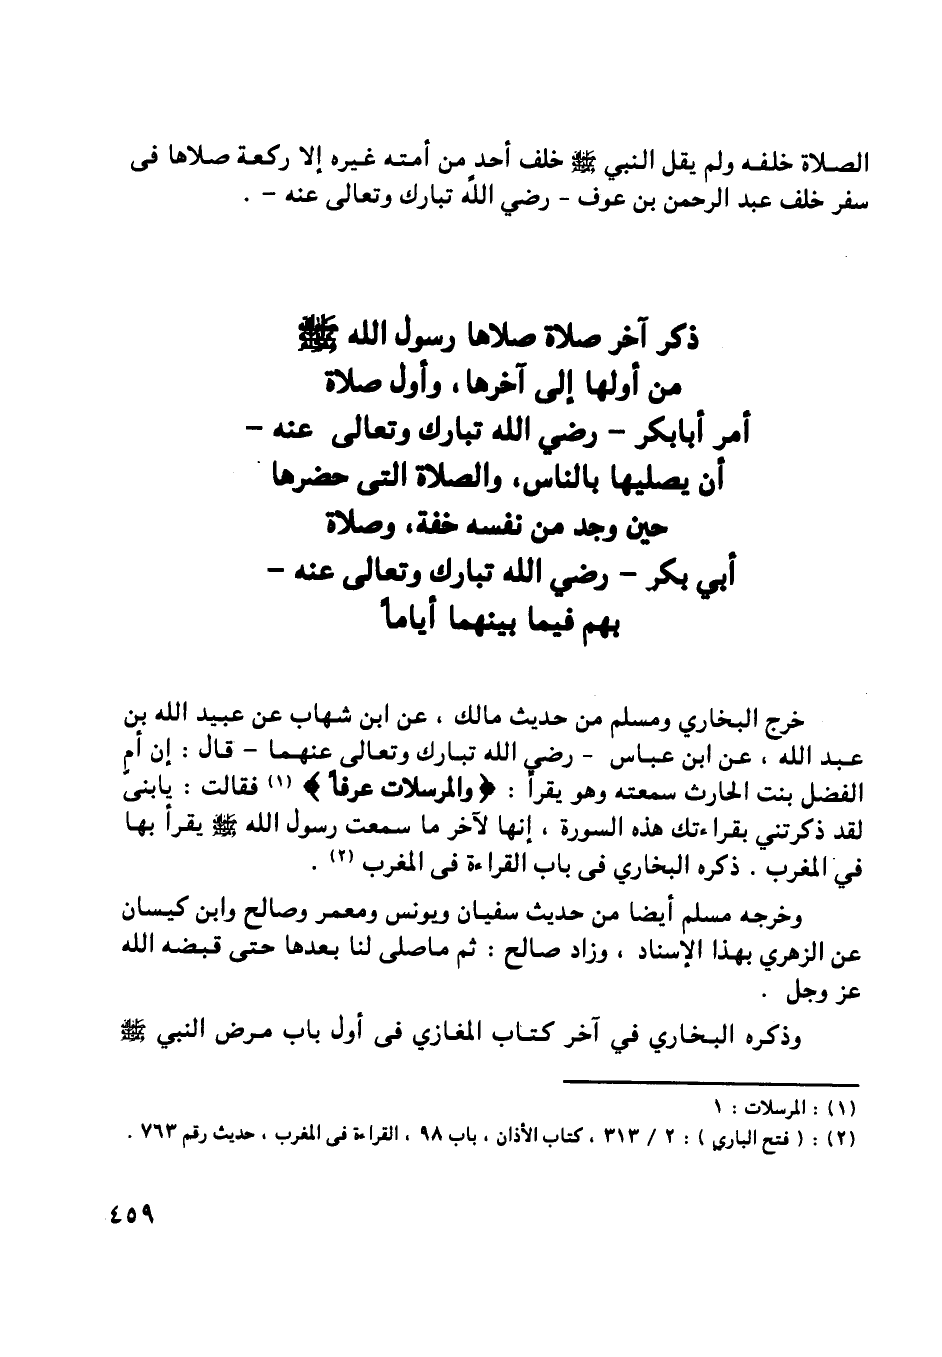 الصلاة خلفه ولم يقل النبي ﷺ خلف أحد من أمته غيره إلا ركعة صلاها فى
سفر خلف عبد الرحمن بن عوف - رضي اللَّه تبارك وتعالى عنه - .
ذكر آخر صلاة صلاها رسول الله ﷺ
من أولها إلى آخرها، وأول صلاة
أمر أبابكر - رضي الله تبارك وتعالى عنه -
أن يصليها بالناس، والصلاة التى حضرها
حين وجد من نفسه خفة، وصلاة
أبي بكر - رضي الله تبارك وتعالى عنه -
بهم فيما بينهما أياماً
خرج البخاري ومسلم من حديث مالك ، عن ابن شهاب عن عبيد الله بن
عبد الله ، عن ابن عباس - رضي الله تبارك وتعالى عنهما - قال : إن أم
الفضل بنت الحارث سمعته وهو يقرأ : ﴿ والمرسلات عرفاً ﴾ (١) فقالت : يابنىَّ
لقد ذكرتني بقراءتك هذه السورة ، إنها لآخر ما سمعت رسول الله ﷺ يقرأ بها
في المغرب . ذكره البخاري فى باب القراءة فى المغرب (٢) .
وخرجه مسلم أيضا من حديث سفيان ويونس ومعمر وصالح وابن كيسان
عن الزهري بهذا الإسناد ، وزاد صالح : ثم ماصلى لنا بعدها حتى قبضه الله
عز وجل .
وذكره البخاري في آخر كتاب المغازي فى أول باب مرض النبي ﷺ
(١) : المرسلات : ١
(٢) : ( فتح الباري ) : ٢ / ٣١٣ ، كتاب الأذان ، باب ٩٨ ، القراءة فى المغرب ، حديث رقم ٧٦٣ .
٤٥٩